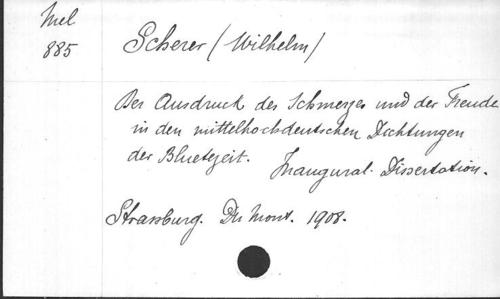 Mel
885
Scherer (Wilhelm)
Der Ausdruck des Schmerzes und der Freude
in den mittelhochdeutschen Dichtungen
der Bluetezeit. Inaugural-Dissertation.
Strassburg. Du Mont. 1908.